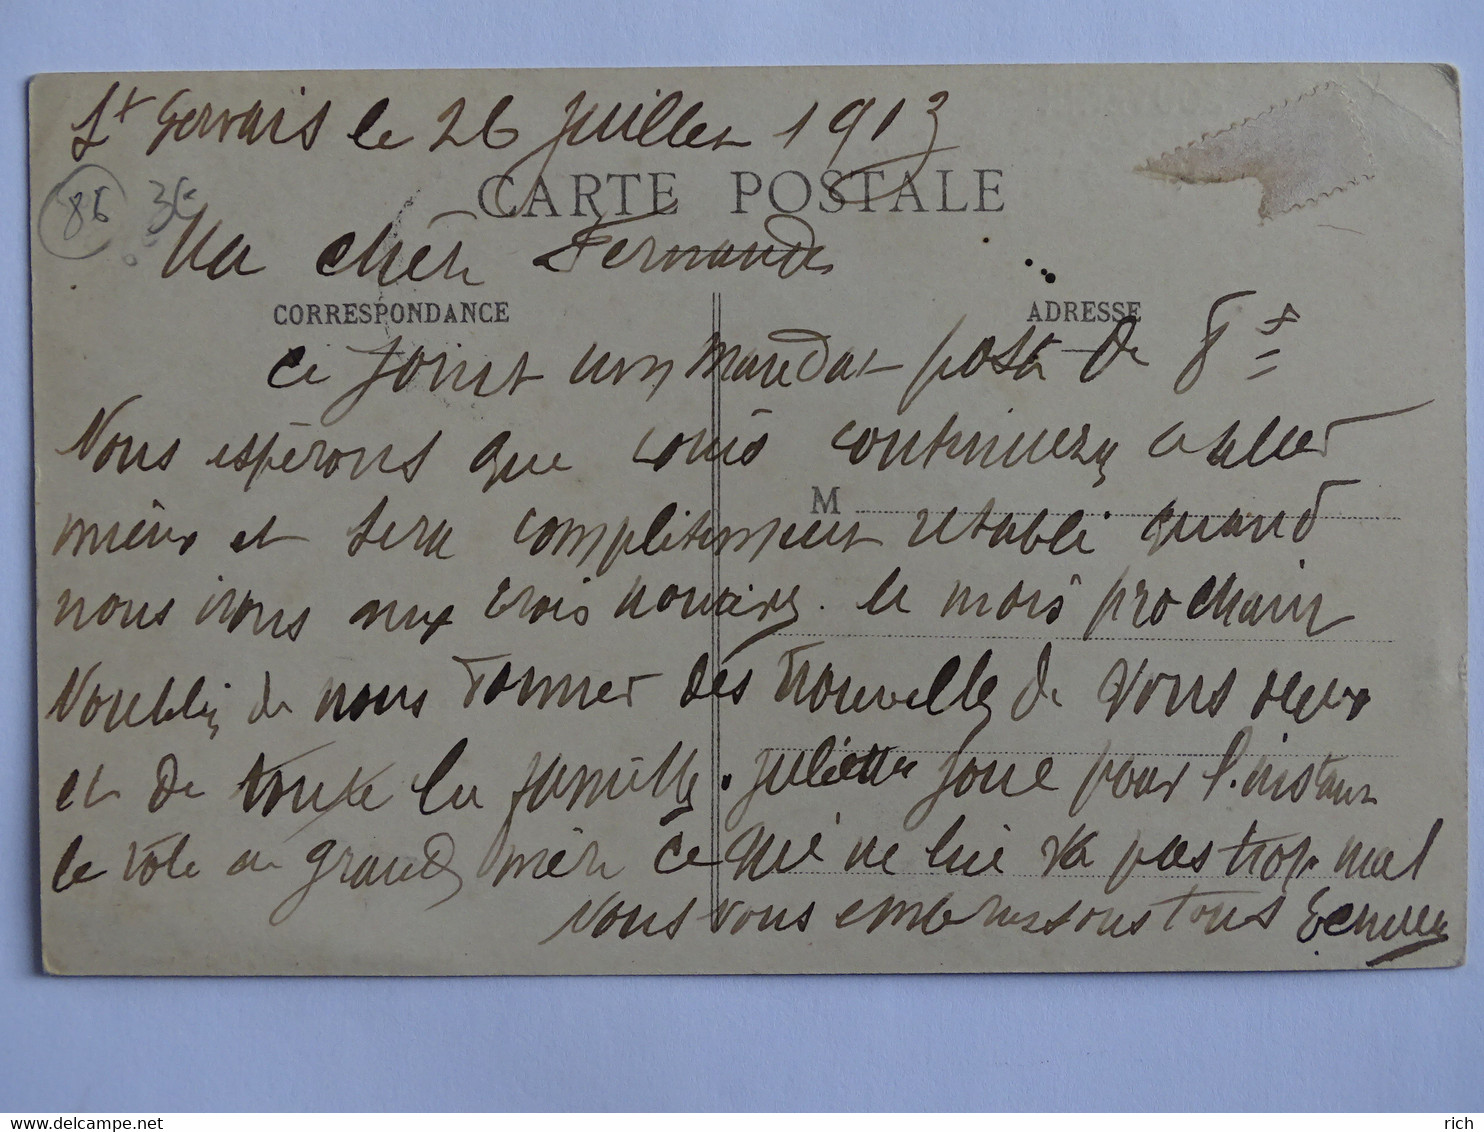 St Gervais le 26 Juillet 1913
CARTE POSTALE
86 3€
Ma chère Fernande
CORRESPONDANCE ADRESSE
ci joint un mandat poste de 8f
Nous espérons que continuerez a aller
M
mieux et sera complitement retabli quand
nous irons aux trois le mois prochain
Noublié de nous donner des nouvelles de vous deux
et de toute la famille. Juliette joue pour l'instant
le role de grand mère ce qui ne lui va pas trop mal
Nous vous embrassons tous
delcampe.net
rich